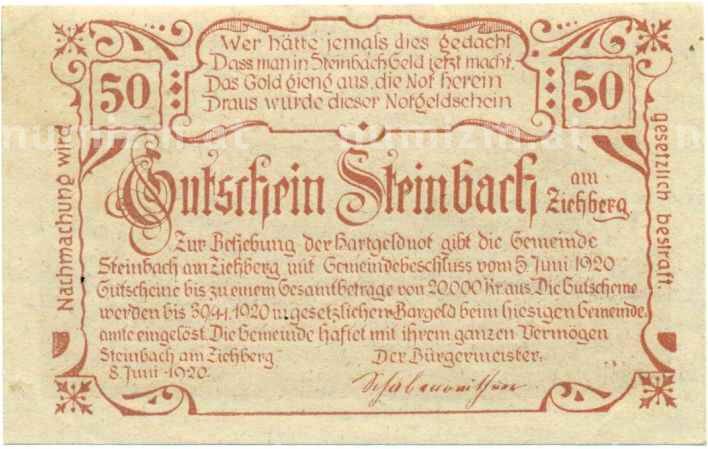 Wer hätte jemals dies gedacht
Dass man in Steinbach Geld jetzt macht.
Das Gold gieng aus, die Not herein
Draus wurde dieser Notgeldschein
50
50
Nachmachung wird
gesetzlich bestraft.
Gutschein Steinbach am Ziehberg.
Zur Behebung der Hartgeldnot gibt die Gemeinde
Steinbach am Ziehberg mit Gemeindebeschluss vom 5. Juni 1920
Gutscheine bis zu einem Gesamtbetrage von 20.000 Kr aus. Die Gutscheine
werden bis 1920 in gesetzlichen Bargeld beim hiesigen Gemeinde
amte eingelöst. Die Gemeinde haftet mit ihrem ganzen Vermögen
Steinbach am Ziehberg
8. Juni 1920.
Der Bürgermeister:
numizm.at